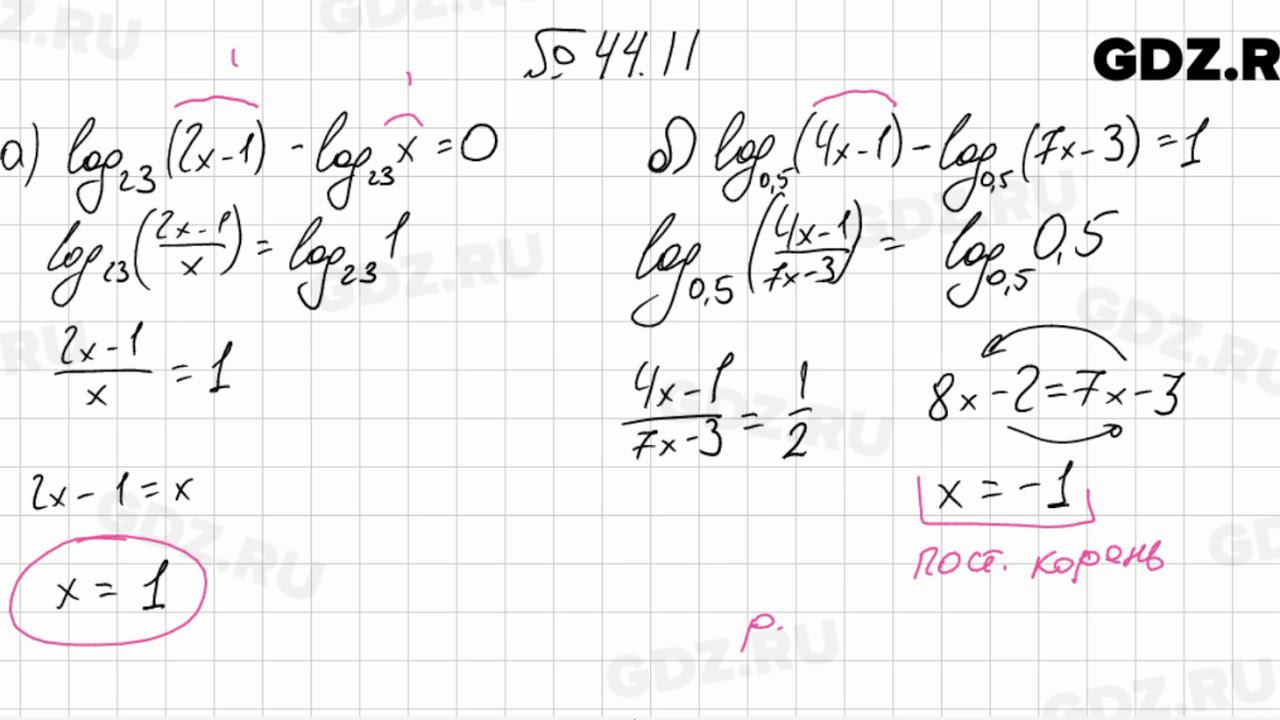 № 44.11
GDZ.R
а) log₂₃ (2x-1) - log₂₃ x = 0
log₂₃ ((2x-1)/x) = log₂₃ 1
(2x-1)/x = 1
2x - 1 = x
x = 1
б) log₀,₅ (4x-1) - log₀,₅ (7x-3) = 1
log₀,₅ ((4x-1)/(7x-3)) = log₀,₅ 0,5
(4x-1)/(7x-3) = 1/2
8x - 2 = 7x - 3
x = -1
пост. корень
р.
GDZ.RU